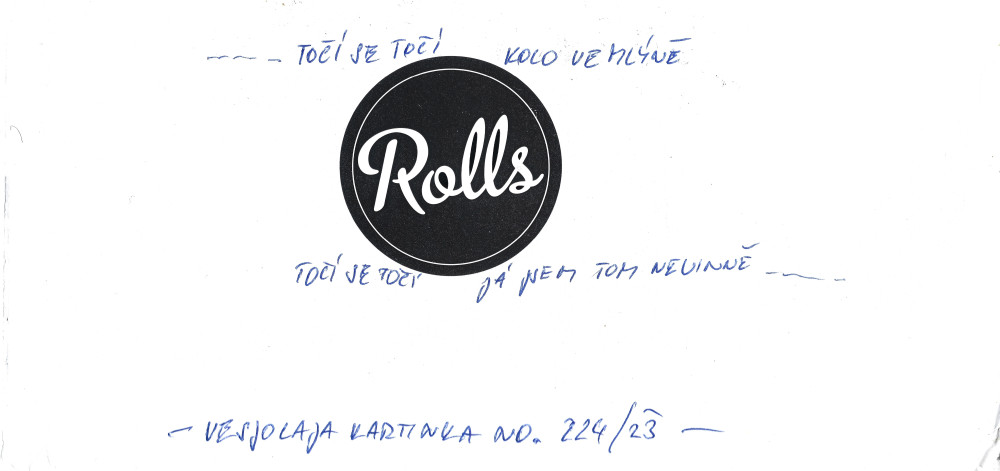 ~ ~ – TOČÍ SE TOČÍ KOLO VE MLÝNĚ
Rolls
TOČÍ SE TOČÍ JÁ JSEM TOM NEVINNĚ – ~ –
– VESJOLAJA KARTINKA NO. 224/23 –